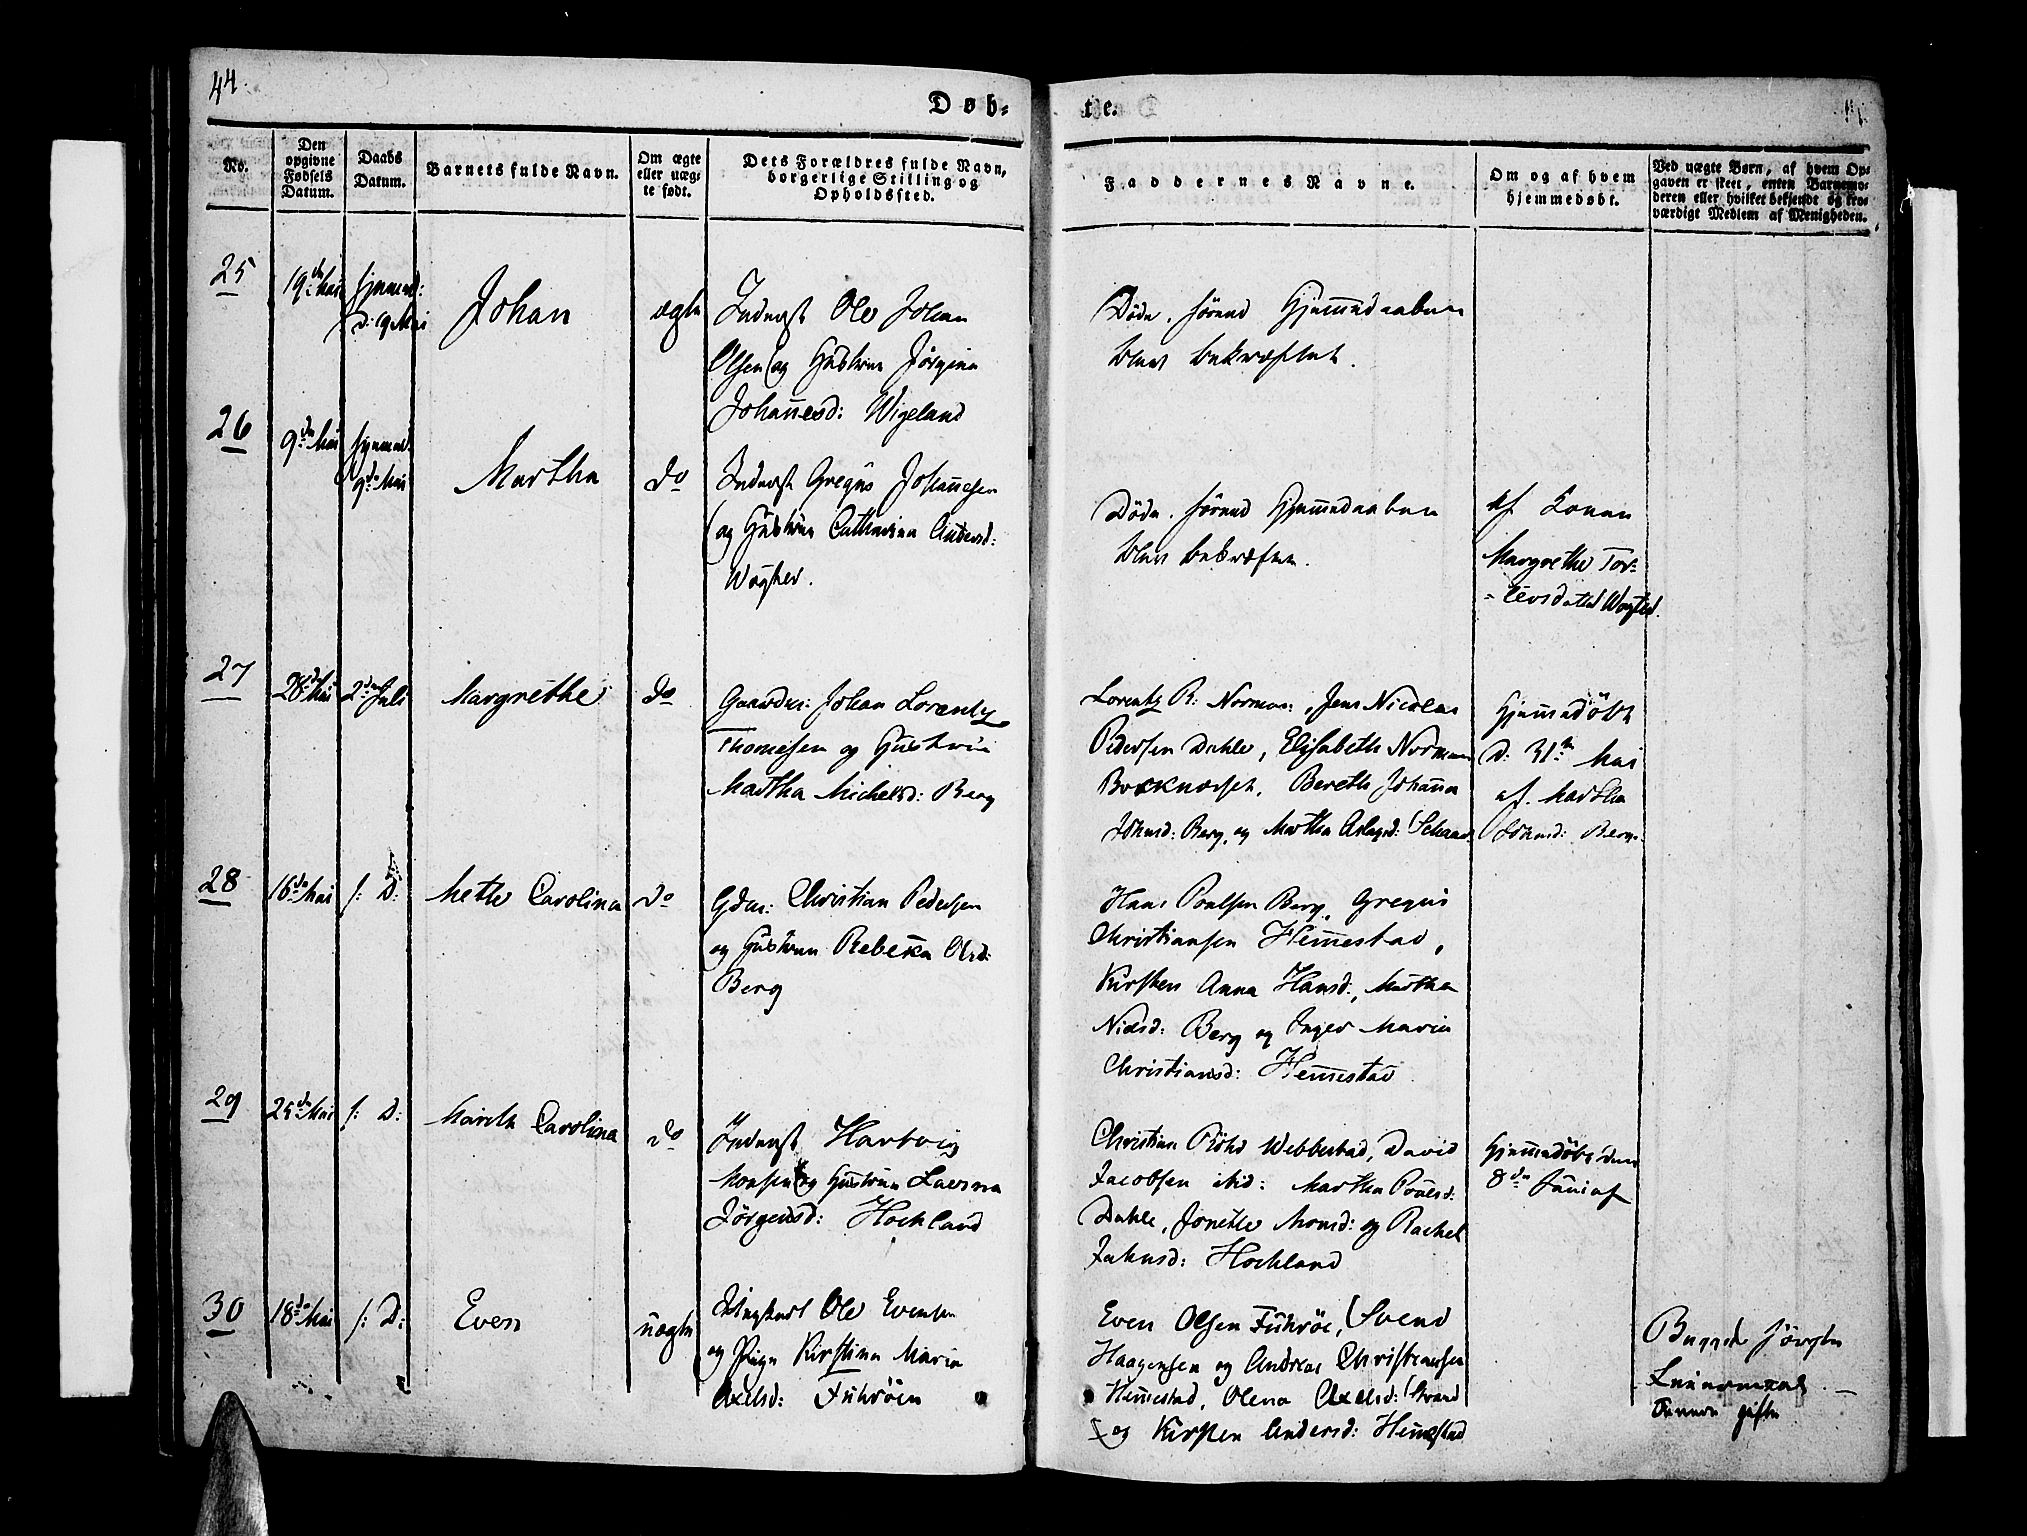 44
Døb-
te.
No.
Den
opgivne
Fødsels
Datum.
Daabs
Datum.
Barnets fulde Navn.
Om ægte
eller uæg-
te født.
Dets Forældres fulde Navn,
borgerlige Stilling og
Opholdssted.
Faddernes Navne.
Om og af hvem
hjemmedøbt.
Ved uægte Børn, af hvem Op-
gaven er skeet, enten Barnemo-
deren eller hvilket bekjendt og tro-
værdigt Medlem af Menigheden.
25
Mai
d: 9 Mai
Johan
ægte
Inderst Ole Johan
Olsen og Hustrue Jørgine
Johannesd: Wigeland
Døde, førend Hjemmedaaben
blev bekræftet.
26
9de Mai
9de Mai
Martha
do
Inderst Gregus Johannesen
og Hustrue Catharina Andersd:
Døde, førend Hjemmedaaben
blev bekræftet.
af Konen
Margrethe Tor-
27
28de Mai
2den Juli
Margrethe
do
Gaardm: Johan Lorentz
Thomesen og Hustrue
Martha Michelsd: Berg
Lorentz R: Norman, Jens Nicolai
Pedersen Dahle, Elisabeth Norman
Bereth Johanna
Johnsd: Berg, og Martha Aslagsd:
Hjemmedøbt
d: 31te Mai
af Martha
Johnsd: Berg.
28
16de Mai
s: D:
Mette Carolina
do
Gdm: Christian Pedersen
og Hustrue Rebekka Olsd:
Berg
Hans Poulsen Berg, Gregus
Christiansen Hemmestad,
Kirsten Anna Hansd:, Martha
Nielsd: Berg og Inger Maria
Christiansd: Hemmestad
29
25de Mai
s: D:
Mareth Carolina
do
Inderst Hartvig
Monsen og Hustrue Laerna
Jørgensd: Hockland
Christian Röhd Webbestad, David
Jacobsen ibid: Martha Poulsd:
Dahle, Jonette Monsd: og Rachel
Hockland
Hjemmedøbt den
8de Juni af
30
18de Mai
s: D:
Even
uægte
Ole Evensen
og Pige Kirstina Maria
Axelsd: Fuhröen
Even Olsen Fuhröe, Svend
Haagensen og Andreas Christensen
Hemmestad, Olena Axelsd: Strand
og Kirsten Andersd: Hemmestad
Begges første
Leiermaal